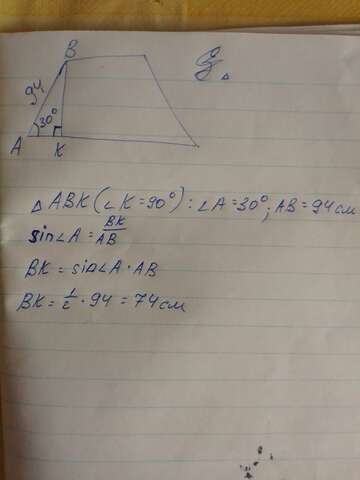 B
94
30°
A
K
△ABK (∠K=90°): ∠A=30°; AB=94см
sin∠A = BK/AB
BK = sin∠A · AB
BK = 1/2 · 94 = 74см